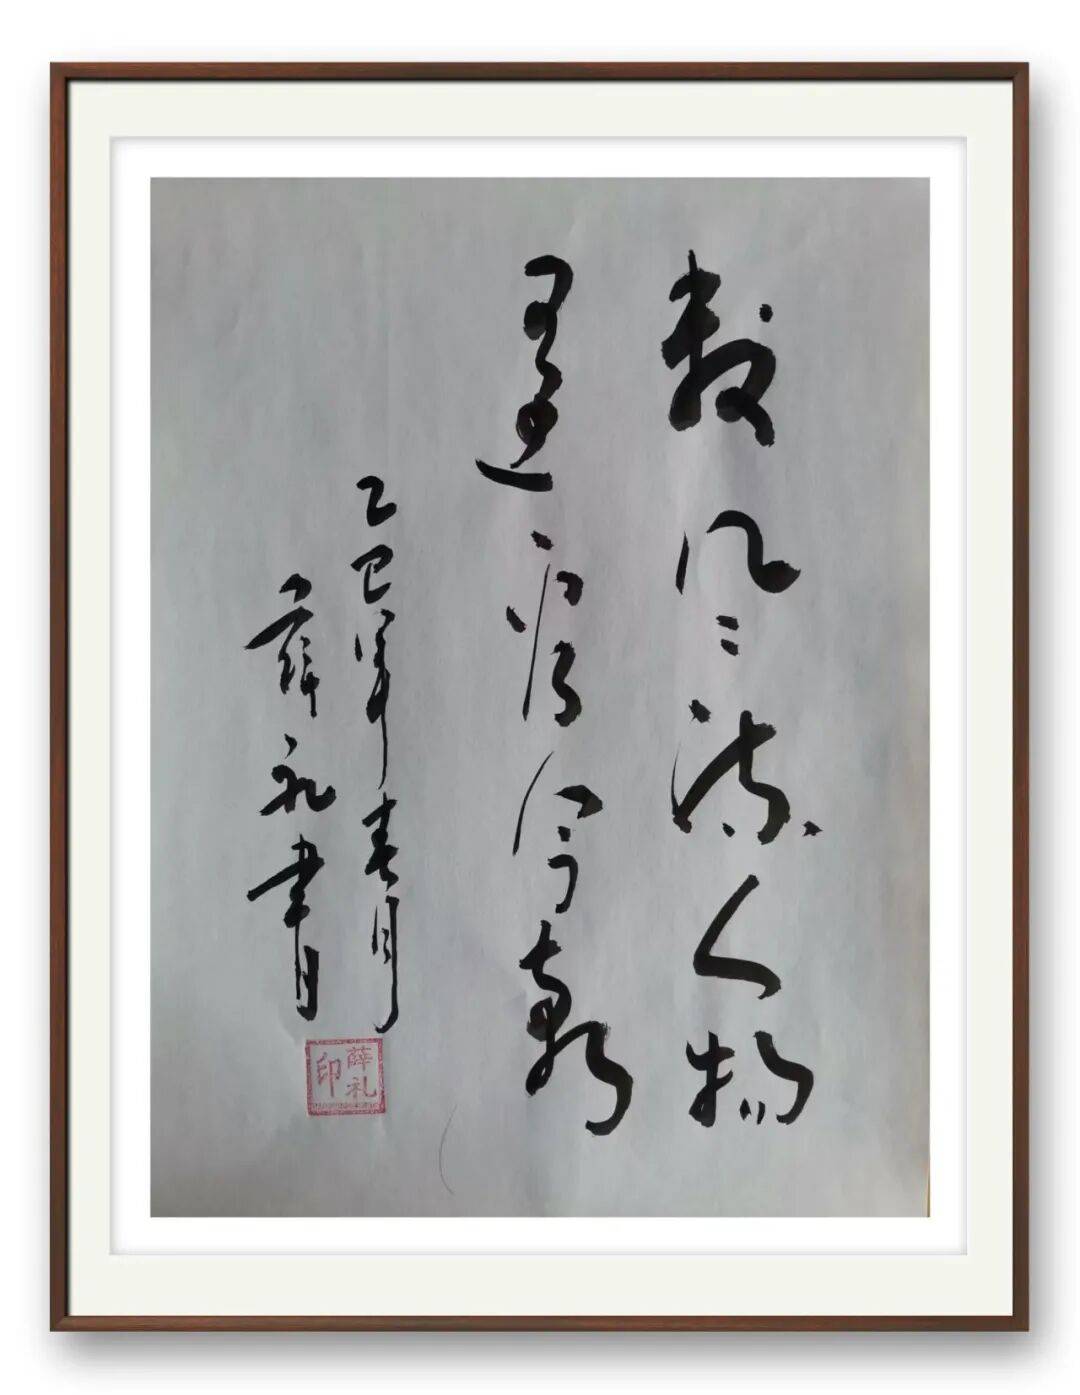 数风流人物
还看今朝
乙巳年春月
薛礼书
薛礼印